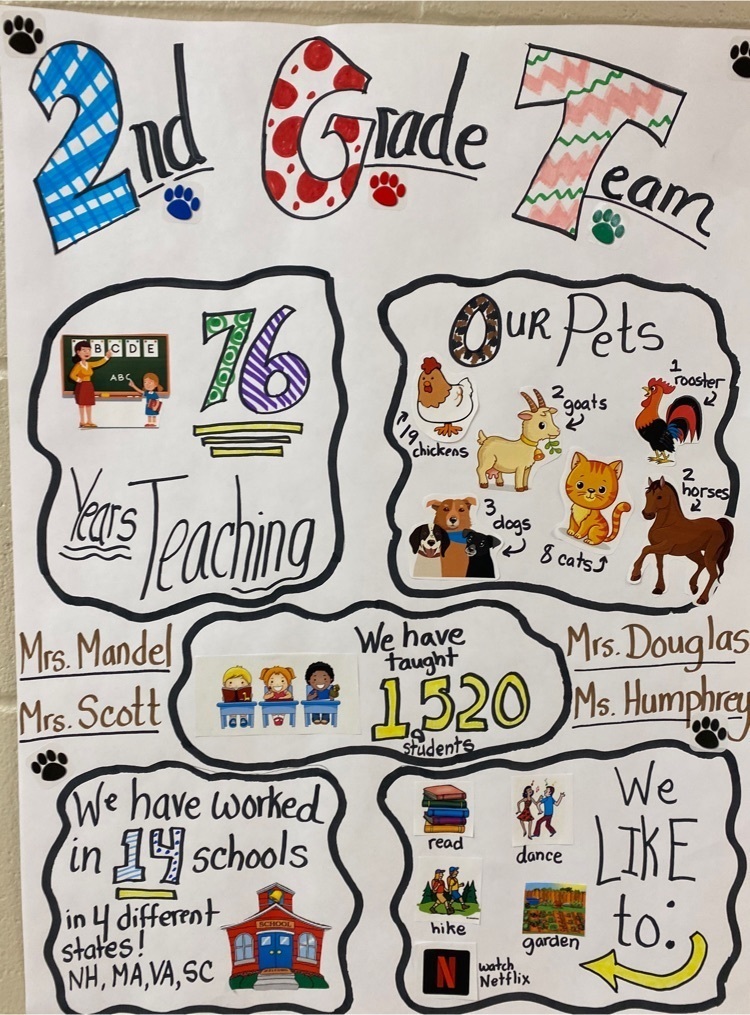 2nd Grade Team
76
Years Teaching
BCDE
ABC
Our Pets
19
chickens
2
goats
1
rooster
3
dogs
8 cats
2
horses
Mrs. Mandel
Mrs. Scott
We have
taught
1520
students
Mrs. Douglas
Ms. Humphrey
We have worked
in 14 schools
in 4 different
states!
NH, MA, VA, SC
SCHOOL
We
LIKE
to:
read
dance
hike
garden
N
watch
Netflix